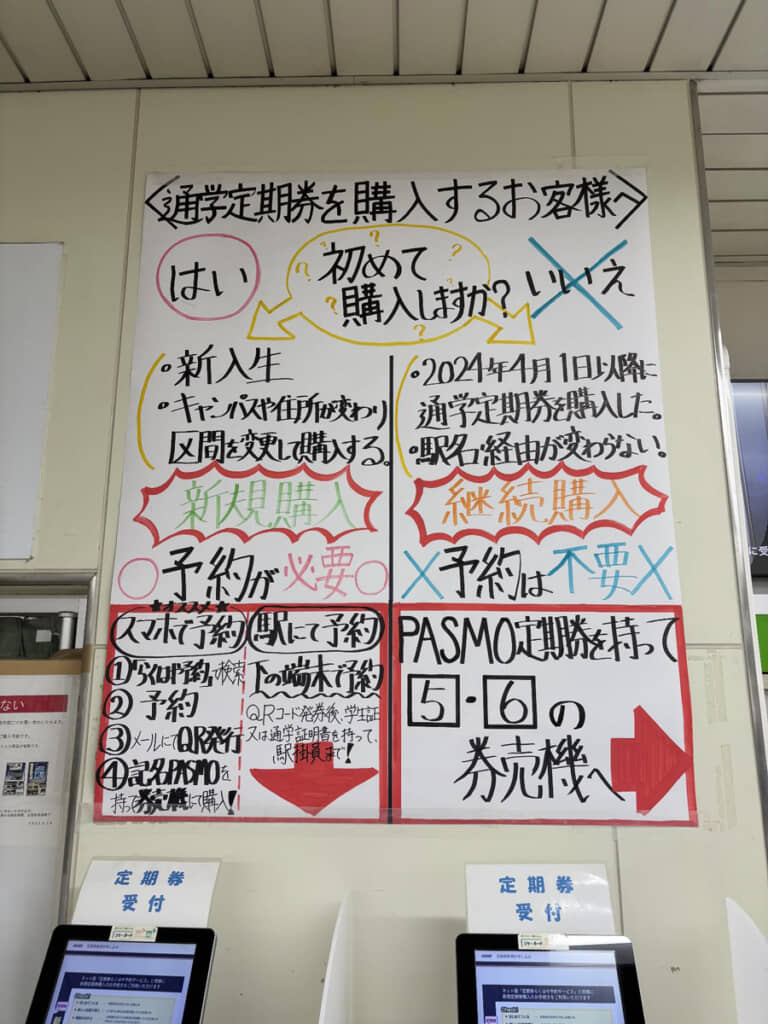 <通学定期券を購入するお客様へ>
はい
初めて
購入しますか?
いいえ
・新入生
・キャンパスや住所が変わり
区間を変更して購入する。
新規購入
○予約が必要○
★オススメ★
スマホで予約
①「らくはや予約」で検索
②予約
③メールにてQR発行
④記名PASMOを
持って券売機にて購入!
駅にて予約
下の端末で予約
QRコード発券後、学生証
又は通学証明書を持って、
駅掛員まで!
・2024年4月1日以降に
通学定期券を購入した。
・駅名・経由が変わらない。
継続購入
×予約は不要×
PASMO定期券を持って
5・6の
券売機へ
定期券
受付
定期券
受付